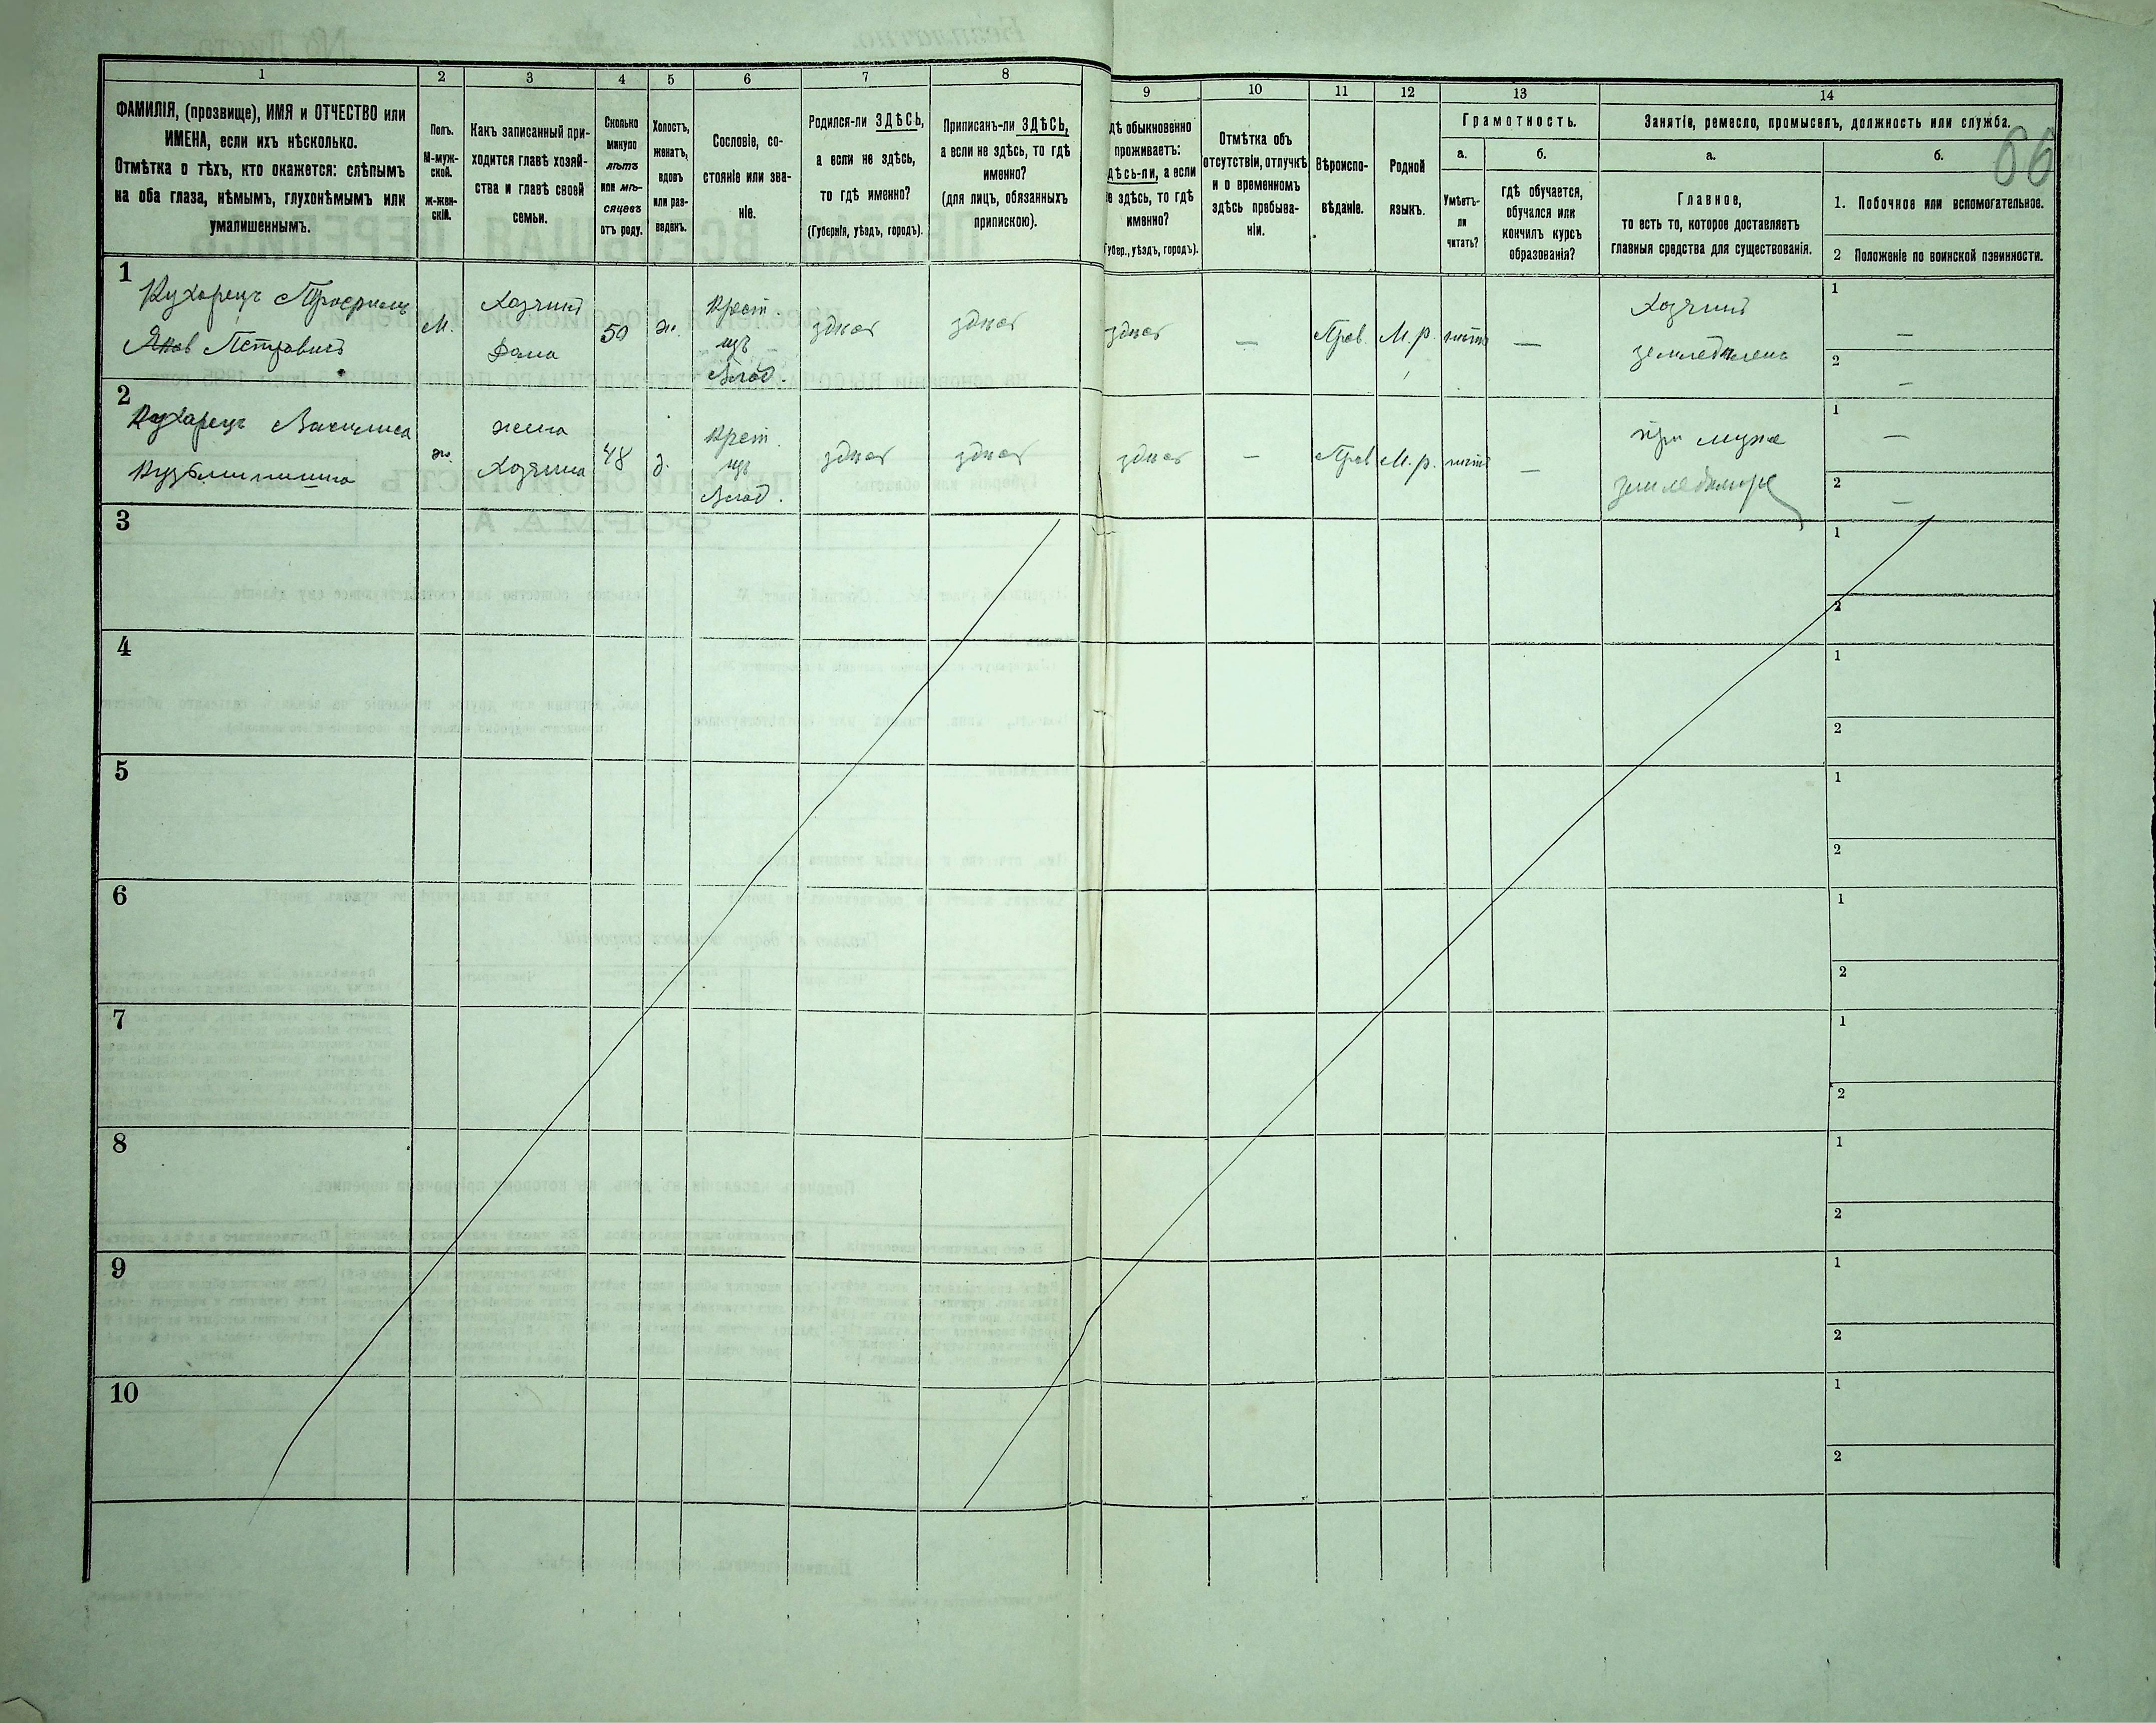 66
1 2 3 4 5 6 7 8 9 10 11 12 13 14
ФАМИЛІЯ, (прозвище), ИМЯ и ОТЧЕСТВО или
ИМЕНА, если ихъ нѣсколько.
Отмѣтка о тѣхъ, кто окажется: слѣпымъ
на оба глаза, нѣмымъ, глухонѣмымъ или
умалишеннымъ.
Полъ.
М-муж-
ской.
ж-жен-
скій.
Какъ записанный при-
ходится главѣ хозяй-
ства и главѣ своей
семьи.
Сколько
минуло
лѣтъ
или мѣ-
сяцевъ
отъ роду.
Холостъ,
женатъ,
вдовъ
или раз-
веденъ.
Сословіе, со-
стояніе или зва-
ніе.
Родился-ли ЗДѢСЬ,
а если не здѣсь,
то гдѣ именно?
(Губернія, уѣздъ, городъ).
Приписанъ-ли ЗДѢСЬ,
а если не здѣсь, то гдѣ
именно?
(для лицъ, обязанныхъ
припискою).
дѣ обыкновенно
проживаетъ:
дѣсь-ли, а если
е здѣсь, то гдѣ
именно?
убер., уѣздъ, городъ).
Отмѣтка объ
отсутствіи, отлучкѣ
и о временномъ
здѣсь пребыва-
ніи.
Вѣроиспо-
вѣданіе.
Родной
языкъ.
Грамотность.
а.
Умѣетъ-
ли
читать?
б.
гдѣ обучается,
обучался или
кончилъ курсъ
образованія?
Занятіе, ремесло, промыселъ, должность или служба.
а.
Главное,
то есть то, которое доставляетъ
главныя средства для существованія.
б.
1. Побочное или вспомогательное.
2 Положеніе по воинской повинности.
1
Кухарецъ
Яков Петровичъ
М.
Хозяинъ
дома
50
ж.
Крест.
изъ
Влад.
здѣсь
здѣсь
здѣсь
—
Прав.
М. р.
нѣтъ
—
Хозяинъ
земледѣлецъ
1 —
2 —
2
Кухарецъ Василиса
Кузьминишна
ж.
жена
Хозяина
48
з.
Крест.
изъ
Влад.
здѣсь
здѣсь
здѣсь
—
Прав
М. р.
нѣтъ
—
при мужѣ
1 —
2 —
3
1
2
4
1
2
5
1
2
6
1
2
7
1
2
8
1
2
9
1
2
10
1
2